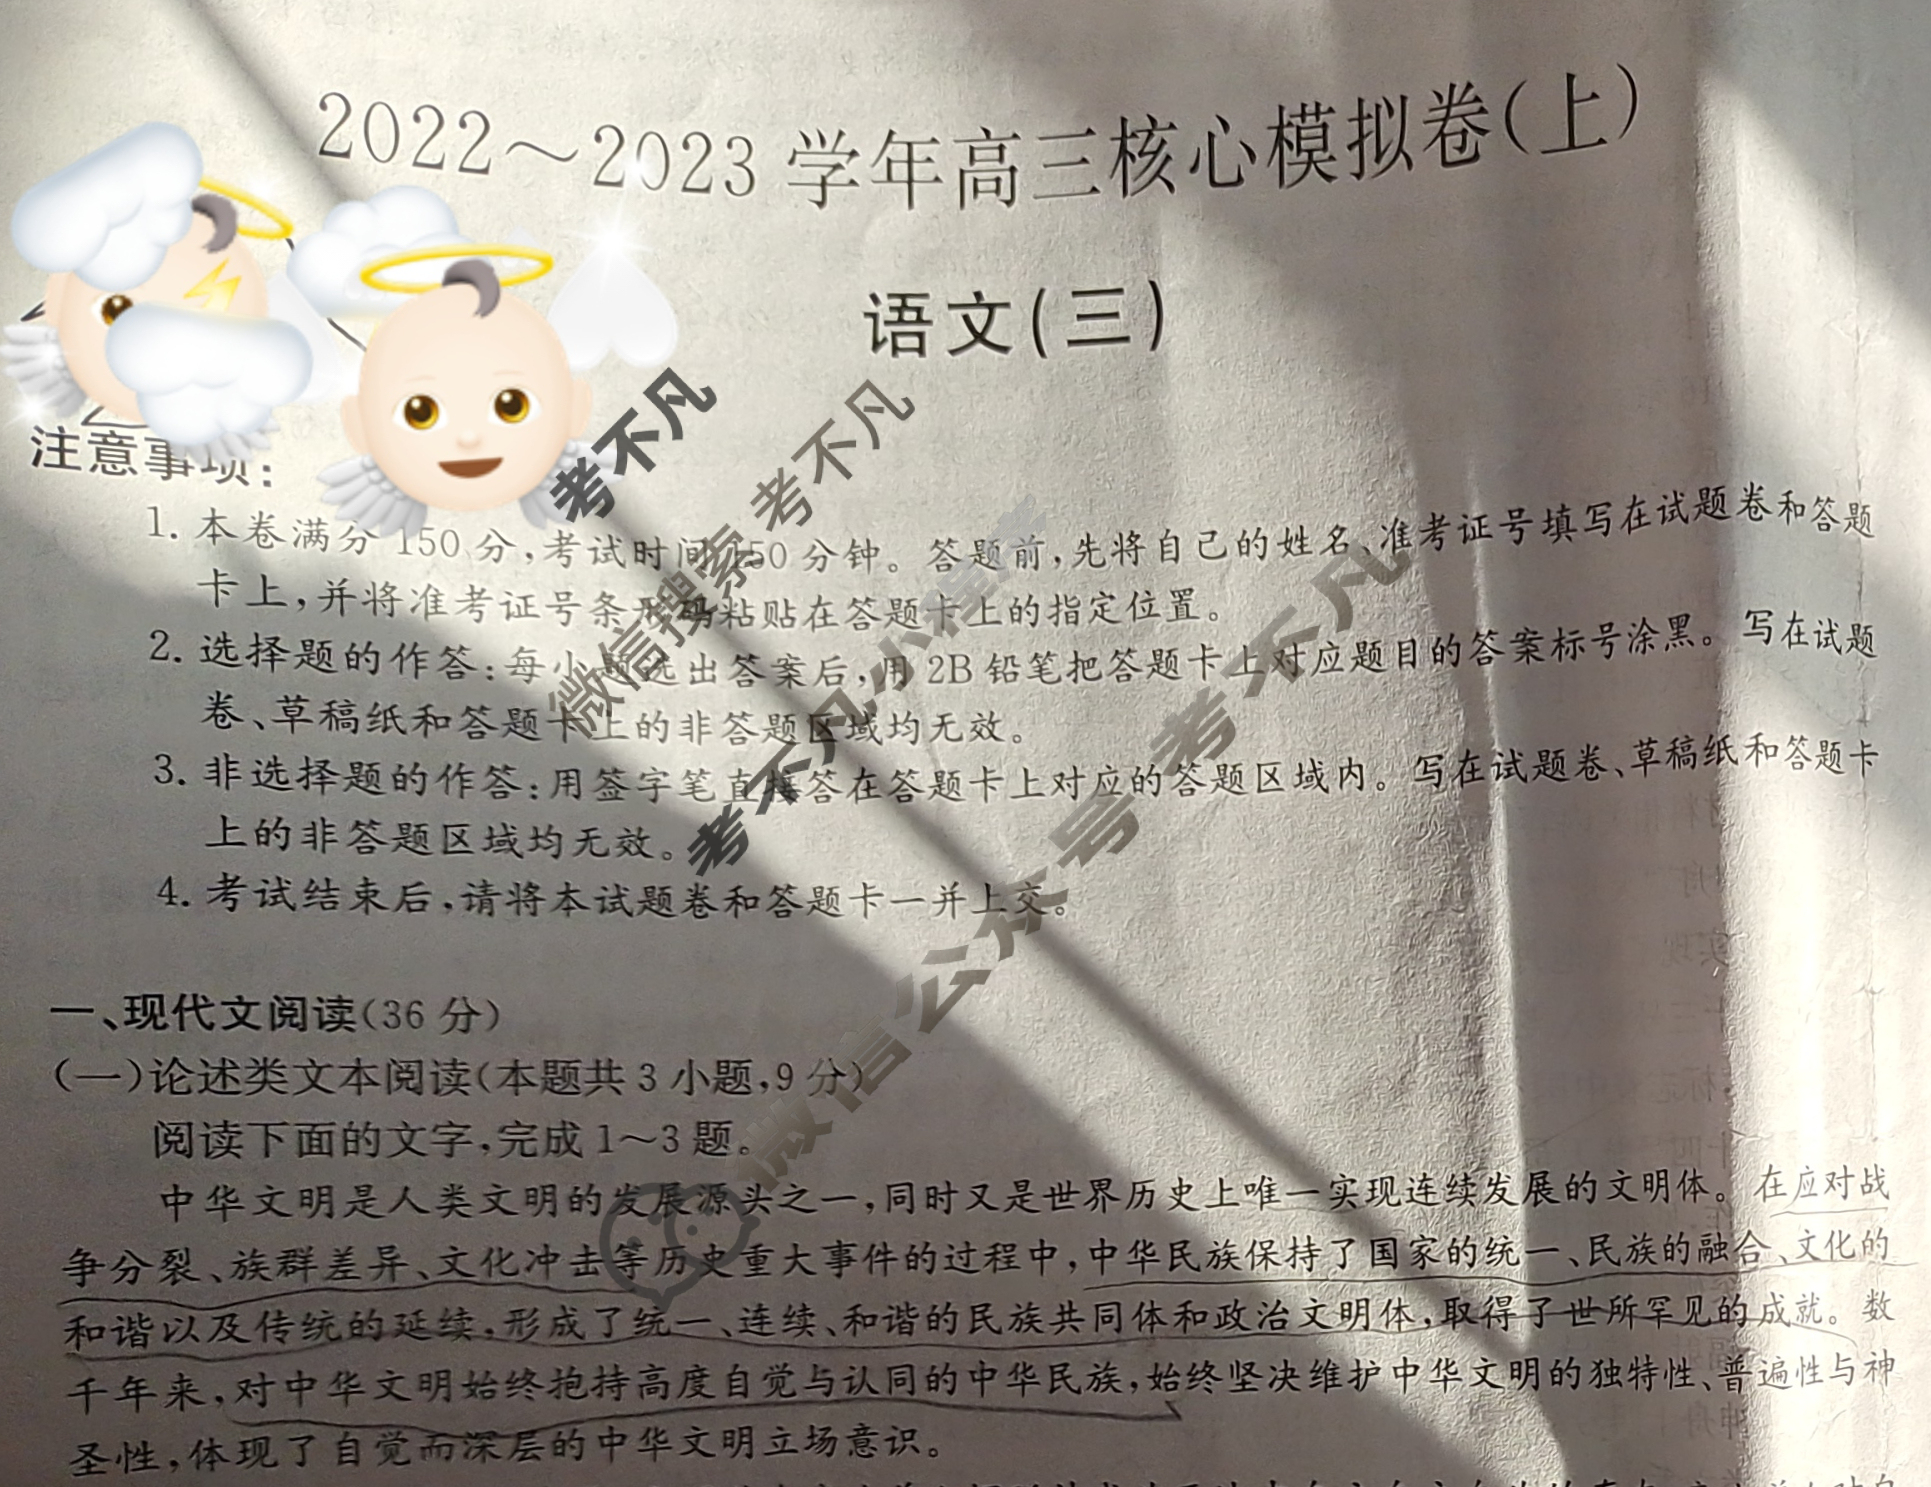 2022～2023学年高三核心模拟卷(上)
语文(三)
注意事项:
1. 本卷满分 150 分,考试时间 150 分钟。答题前,先将自己的姓名、准考证号填写在试题卷和答题
卡上,并将准考证号条形码粘贴在答题卡上的指定位置。
2. 选择题的作答:每小题选出答案后,用 2B 铅笔把答题卡上对应题目的答案标号涂黑。写在试题
卷、草稿纸和答题卡上的非答题区域均无效。
3. 非选择题的作答:用签字笔直接答在答题卡上对应的答题区域内。写在试题卷、草稿纸和答题卡
上的非答题区域均无效。
4. 考试结束后,请将本试题卷和答题卡一并上交。
一、现代文阅读(36 分)
(一)论述类文本阅读(本题共 3 小题,9 分)
阅读下面的文字,完成 1～3 题。
中华文明是人类文明的发展源头之一,同时又是世界历史上唯一实现连续发展的文明体。在应对战
争分裂、族群差异、文化冲击等历史重大事件的过程中,中华民族保持了国家的统一、民族的融合、文化的
和谐以及传统的延续,形成了统一、连续、和谐的民族共同体和政治文明体,取得了世所罕见的成就。数
千年来,对中华文明始终抱持高度自觉与认同的中华民族,始终坚决维护中华文明的独特性、普遍性与神
圣性,体现了自觉而深层的中华文明立场意识。
考不凡
微信搜索 考不凡
考不凡小程序
微信公众号 考不凡